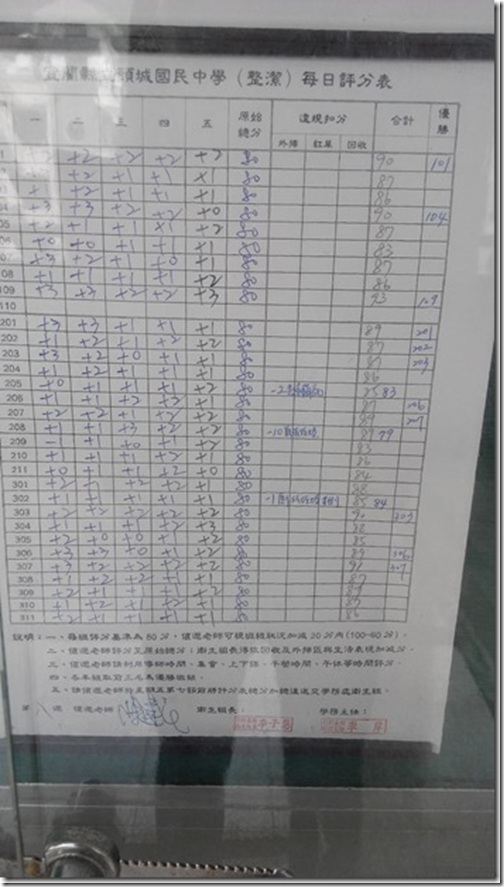 宜蘭縣立頭城國民中學（整潔）每日評分表
一 二 三 四 五 原始總分 違規扣分 合計 優勝
外掃 紅單 回收
+2 +2 +2 +2 80 90 101
+2 +1 +1 +1 80 87
+1 +2 +1 +1 +1 80 86
+3 +3 +2 +2 +0 80 90 104
+2 +1 +1 +1 +2 80 87
+0 +0 +1 +1 +1 80 83
+3 +2 +1 +0 +1 80 87
108 +1 +1 +1 +1 +2 80 86
109 +3 +3 +2 +2 +3 80 93 109
110
201 +3 +3 +1 +1 +1 80 89 201
202 +1 +2 +1 +2 +2 80 87 202
203 +3 +2 +0 +1 +1 80 87 203
204 +1 +2 +1 +1 +1 80 86
205 +0 +1 +1 +1 +2 80 -2 85 83
206 +1 +1 +2 +2 +1 80 87 206
207 +2 +2 +1 +2 +2 80 89 207
208 +1 +1 +3 +2 +2 80 -10 89 79
209 -1 +1 +0 +1 +2 80 83
210 +1 +1 +1 +2 +1 80 86
211 +0 +1 +1 +2 +0 80 84
301 +2 +1 +2 +2 +1 80 88
302 +1 +1 +1 +1 +1 80 -1 85 84
303 +2 +2 +2 +2 +2 80 90 303
304 +1 +1 +1 +2 +3 80 88
305 +2 +0 +0 +1 +2 80 85
306 +3 +3 +0 +1 +2 80 89 306
307 +3 +2 +2 +2 +2 80 91 307
308 +1 +2 +2 +1 +1 80 87
309 +2 +1 +1 +1 +2 80 87
310 +1 +1 +2 +2 +1 80 87
311 +1 +1 +2 +1 +1 80 86
說明：一、每班評分基準為80分，值週老師可視班級狀況加減20分內(100-60分)。
二、值週老師評分至原始總分；衛生組長得依回收及外掃區與生活表現加減分。
三、值週老師請利用導師時間、集會、上下課、午餐時間、午休等時間評分。
四、各年級取前三名為優勝班級。
五、請值週老師於星期五第七節前將評分表總分加總送交學務處衛生組。
第 八 週 值週老師： 衛生組長： 學務主任：